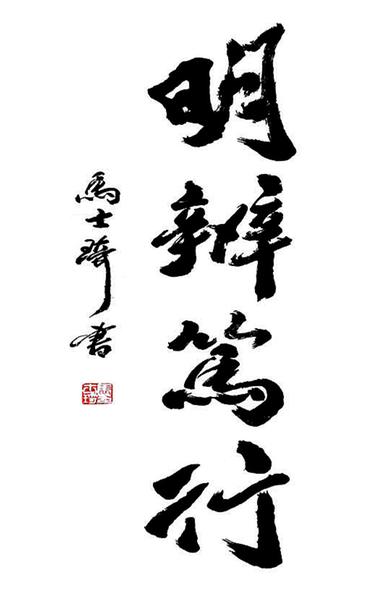 明辨篤行
馬士琦書